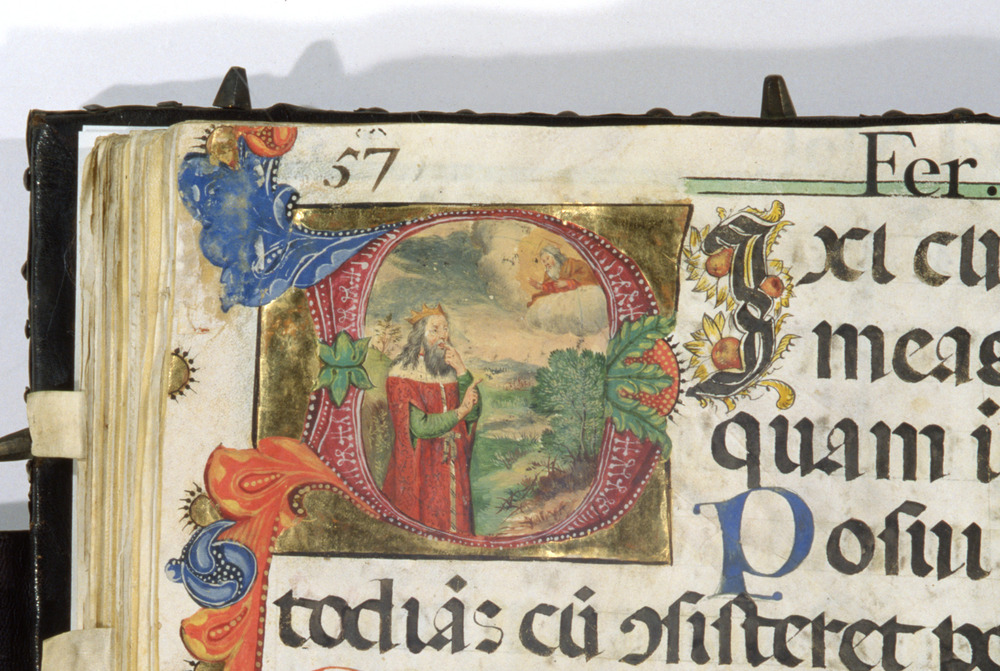 57
Fer.
DIxi cu
meas
quam i
Poſui
todiás cū ↄſiſteret pc